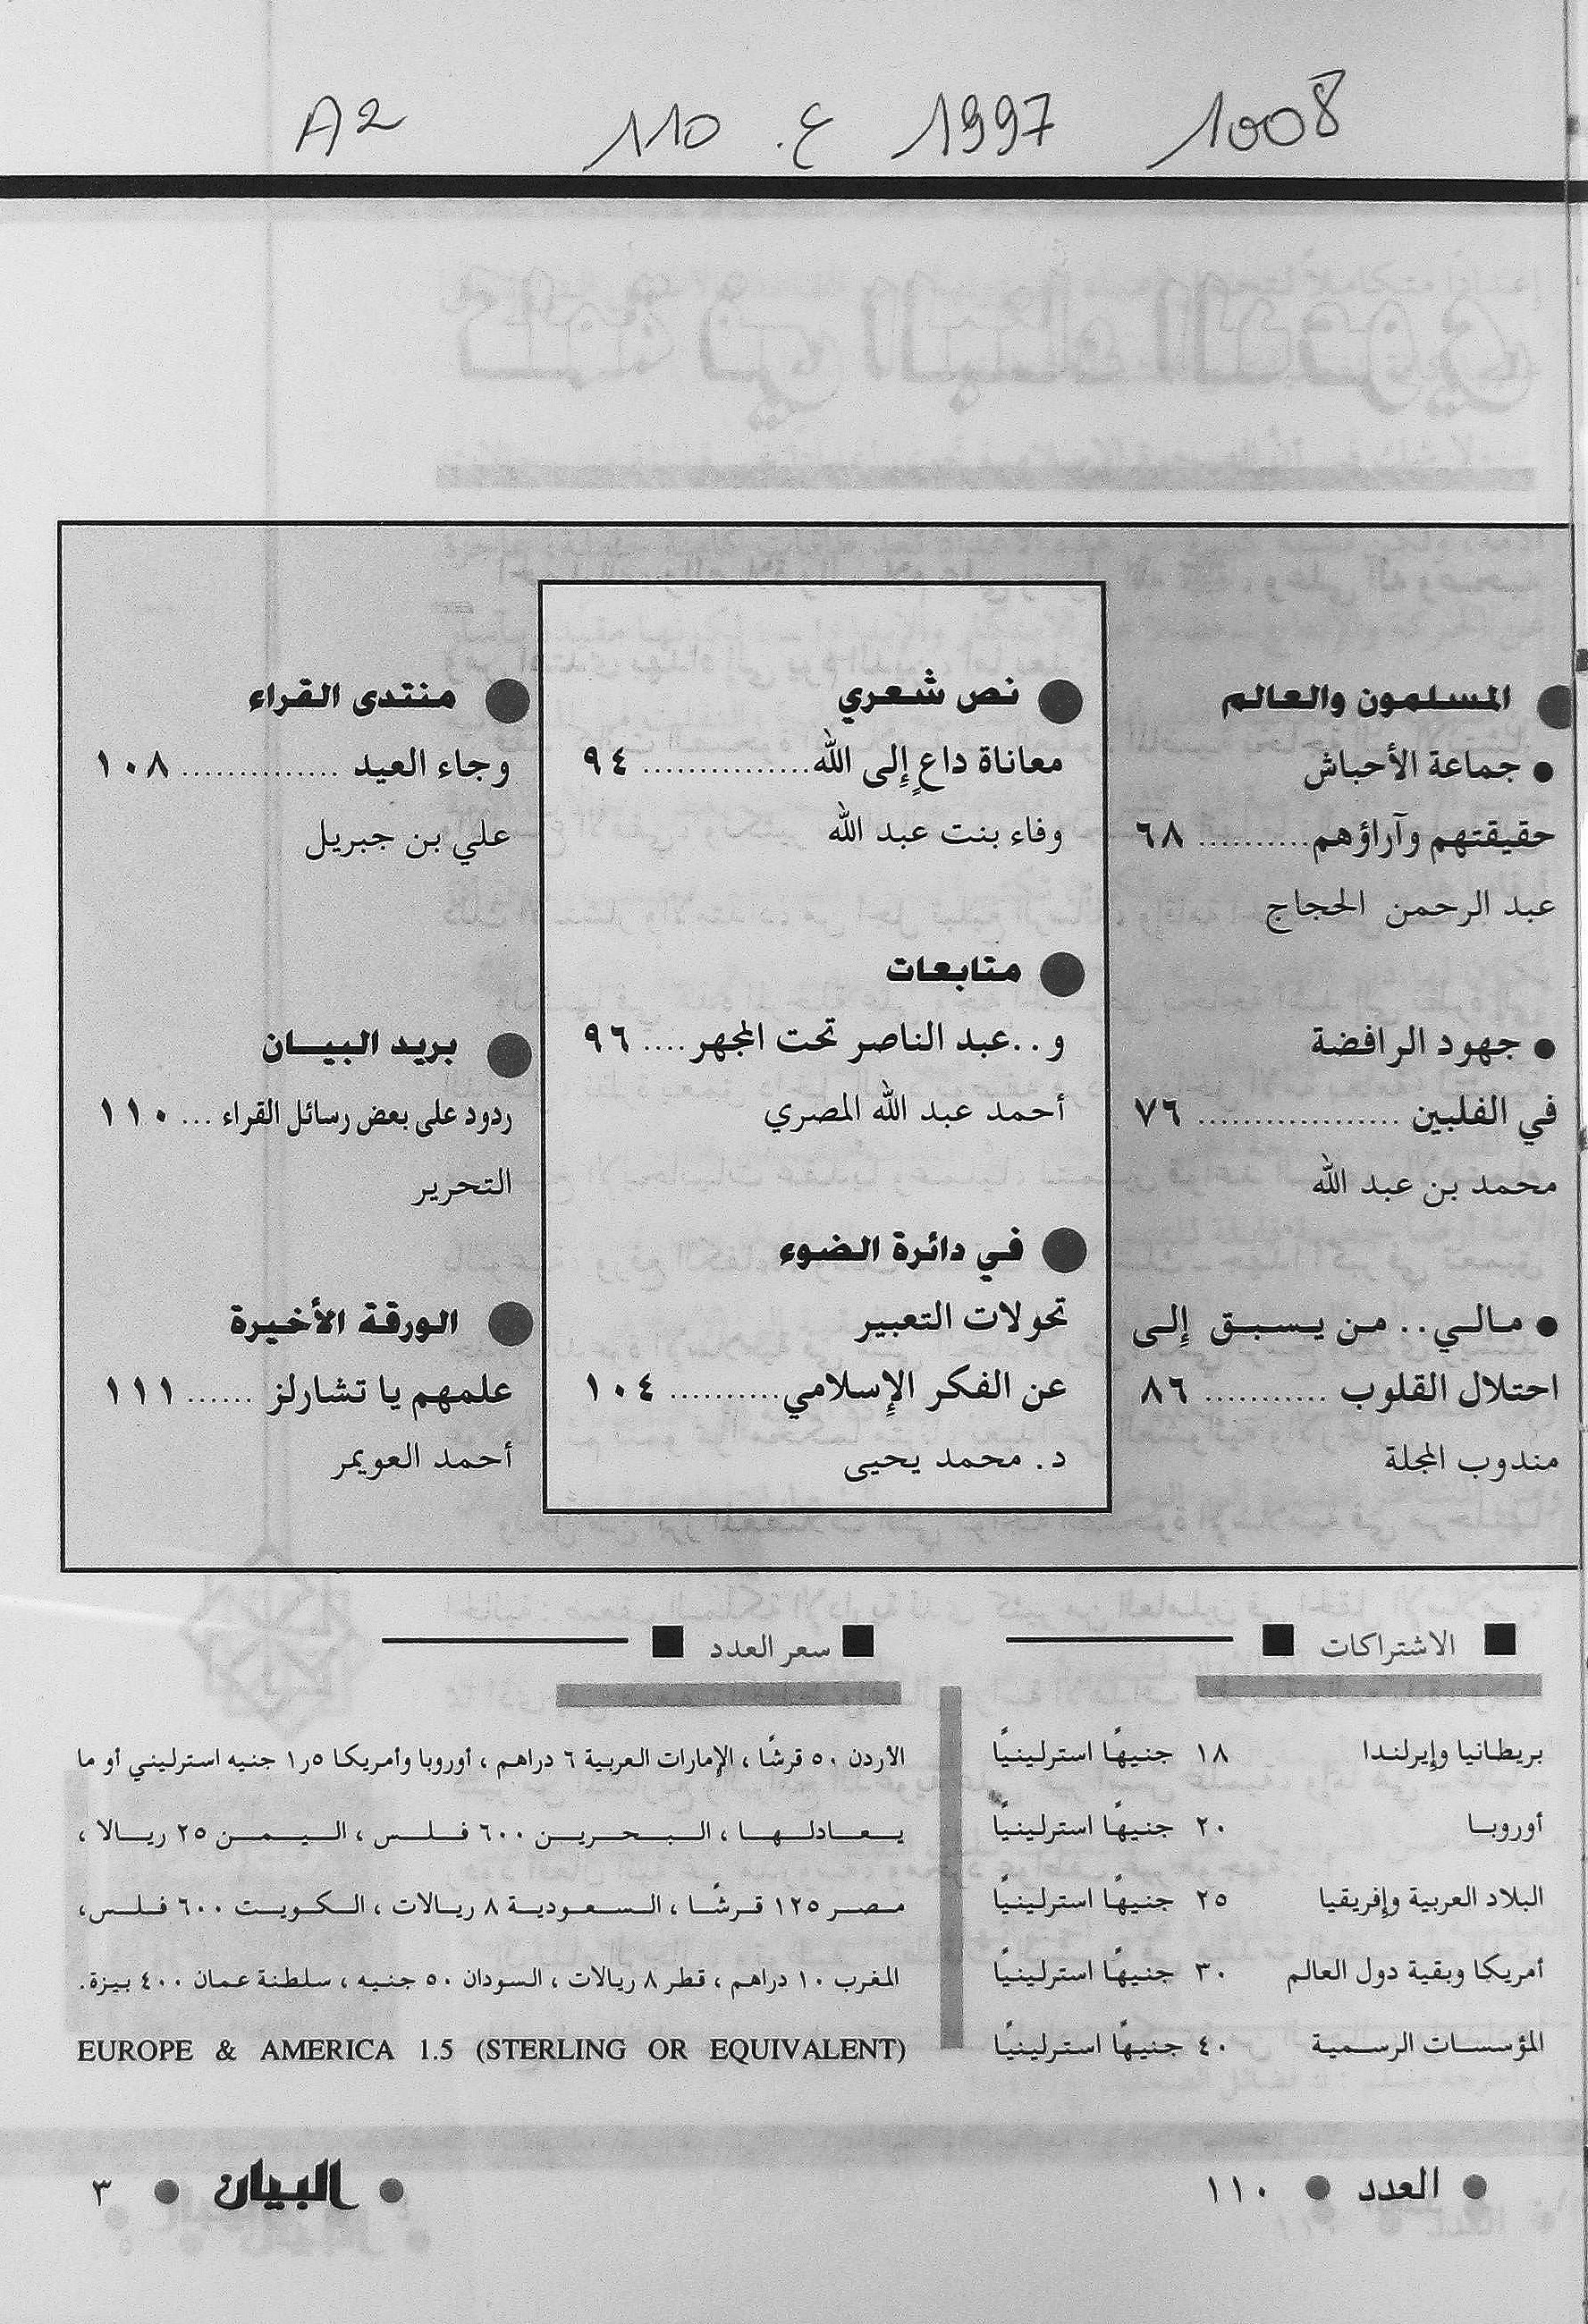 A2 110 ع. 1997 1008
المسلمون والعالم
جماعة الأحباش
حقيقتهم وآراؤهم .......... ٦٨
عبد الرحمن الحجاج
جهود الرافضة
في الفلبين .................. ٧٦
محمد بن عبد الله
مـالـي.. مـن يـسـبـق إلى
احتلال القلوب ........... ٨٦
مندوب المجلة
نص شعري
معاناة داعٍ إلى الله............... ٩٤
وفاء بنت عبد الله
متابعات
و..عبد الناصر تحت المجهر .... ٩٦
أحمد عبد الله المصري
في دائرة الضوء
تحولات التعبير
عن الفكر الإسلامي .......... ١٠٤
د. محمد يحيى
منتدى القراء
وجاء العيد .............. ١٠٨
علي بن جبريل
بريد البيـــان
ردود على بعض رسائل القراء ... ١١٠
التحرير
الورقة الأخيرة
علمهم يا تشارلز ...... ١١١
أحمد العويمر
الاشتراكات
بريطانيا وإيرلندا ١٨ جنيهًا استرلينيًا
أوروبـا ٢٠ جنيهًا استرلينيًا
البلاد العربية وإفريقيا ٢٥ جنيهًا استرلينيًا
أمريكا وبقية دول العالم ٣٠ جنيهًا استرلينيًا
المؤسسات الرسمية ٤٠ جنيهًا استرلينيًا
سعر العدد
الأردن ٥٠ قرشًا ، الإمارات العربية ٦ دراهم ، أوروبا وأمريكا ١٫٥ جنيه استرليني أو ما
يـعـادلـهـا ، الـبـحـريـن ٦٠٠ فـلـس ، الـيـمـن ٢٥ ريـالا ،
مـصـر ١٢٥ قـرشًـا ، الـسـعـوديـة ٨ ريـالات ، الـكـويـت ٦٠٠ فـلـس،
المغرب ١٠ دراهم ، قطر ٨ ريالات ، السودان ٥٠ جنيه ، سلطنة عمان ٤٠٠ بيزة.
EUROPE & AMERICA 1.5 (STERLING OR EQUIVALENT)
العدد ● ١١٠ ● البيان ● ٣